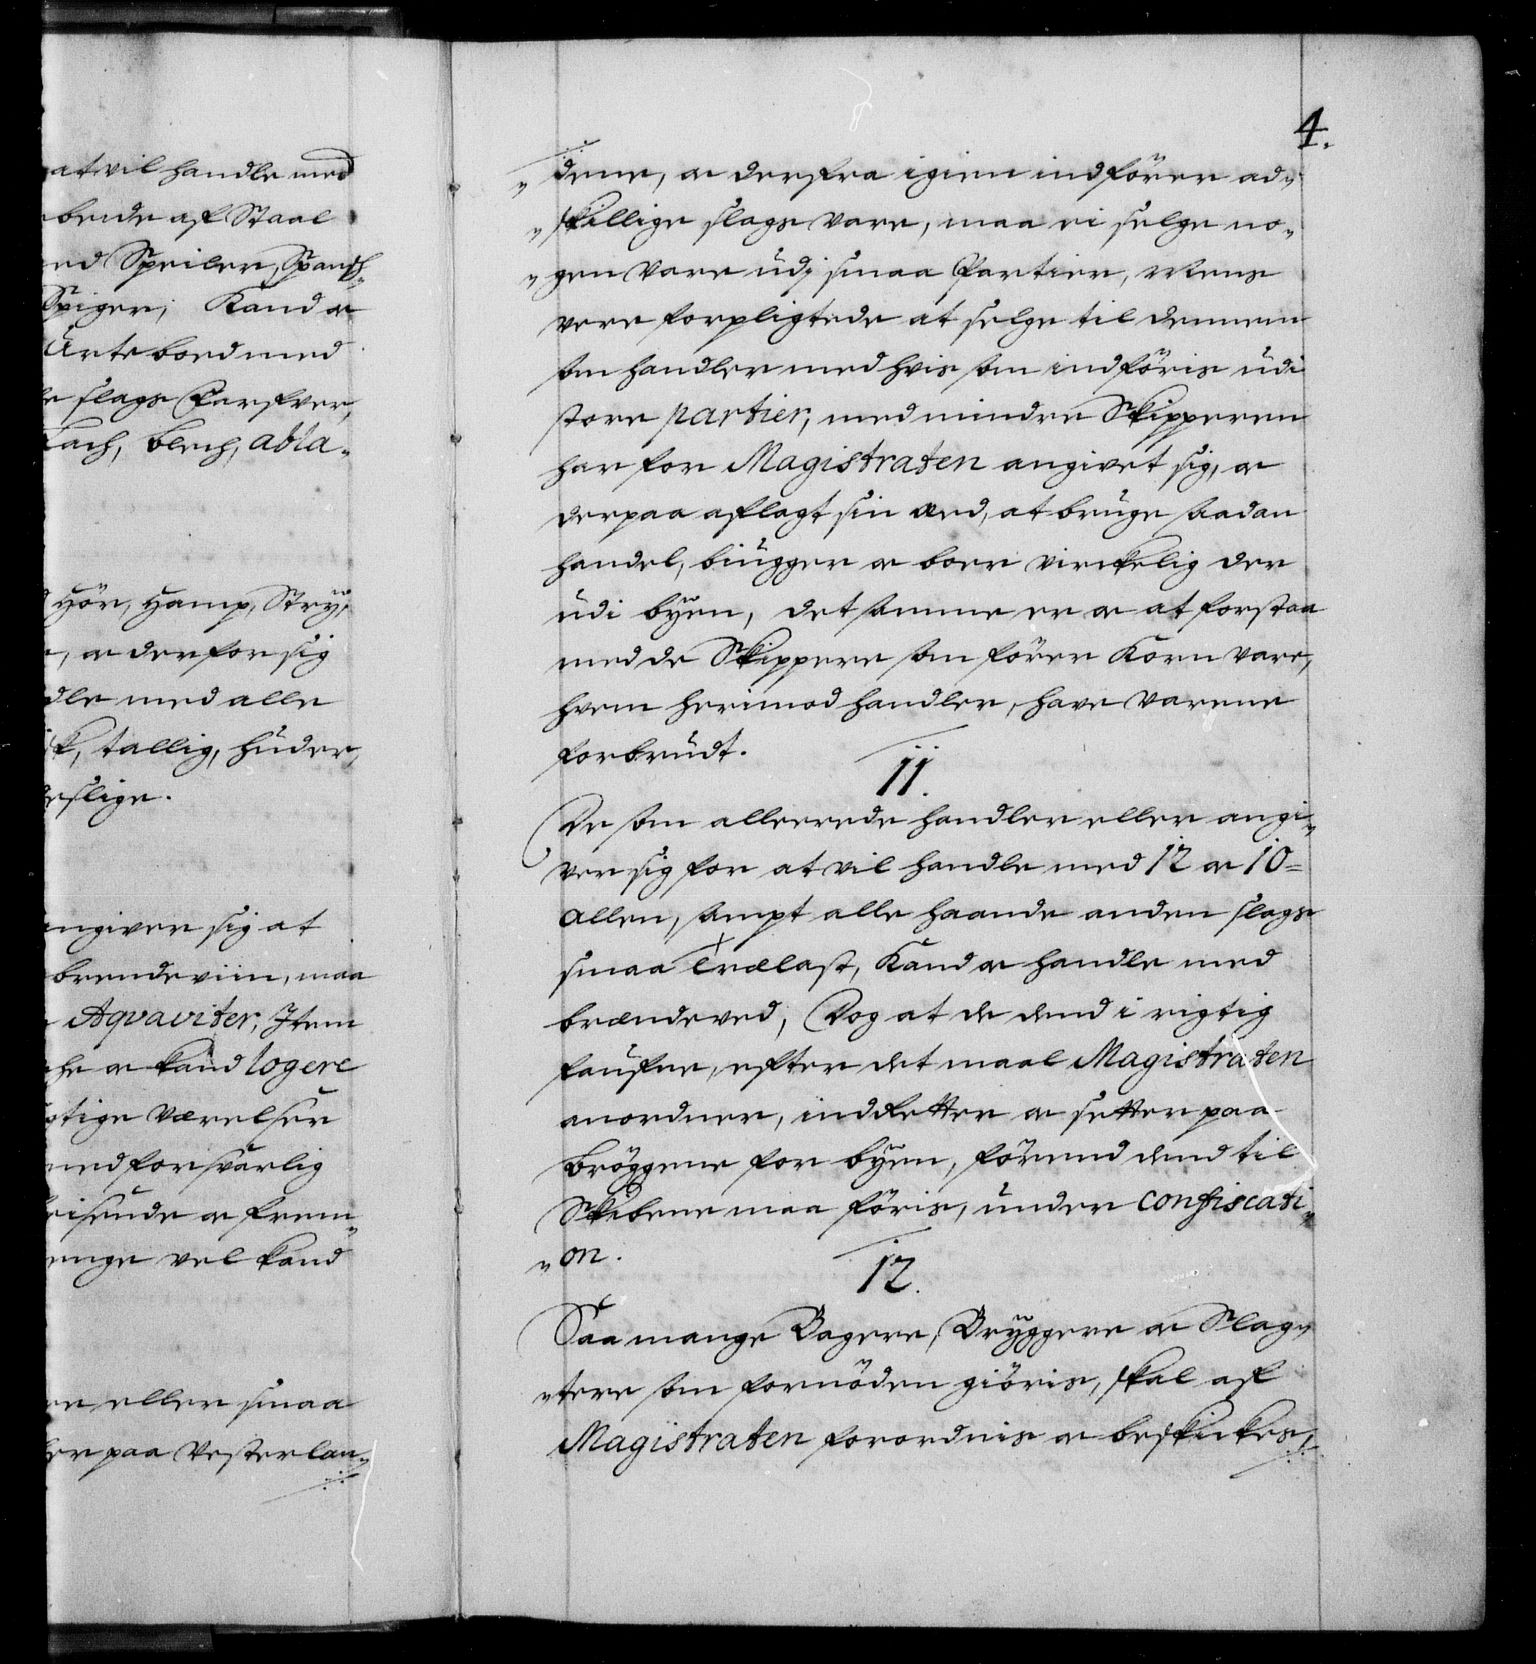 at vil handle med
bende af Staal
ed Speiler, Spansk
Spiger, Kand oc
Urtebod med
e slags Farfver,
Lach, blech, abla-
Hör, Hamp, Strÿ,
, oc der for sig
dle med alle
k, tallig, huder,
eslige.
angiver sig at
brendeviin, maa
Aqvaviter, Item
he oc kand logere
gtige Værelser
ned forsvarlig
reisende oc frem-
enge vel kand
re eller smaa
er paa Vesterlan-
4.
dene, oc derfra igien indfører ad-
skillige slags vare, maa ei selge no-
gen vare udj smaa Partier, mens
vere forpligtede at selge til dennem
som handler med hvis som indføris udi
store partier, med mindre Skipperen
har for Magistraten angivet sig, oc
derpaa aflagt sin æed, at bruge saadan
handel, biugger oc boer virkelig der
udi byen, det samme er oc at forstaa
med de Skippere som fører Korn vare,
hvem herimod handler, have varene
forbrudt.
11.
De som allerede handler eller angi-
ver sig for at vil handle med 12 oc 10
allen, sampt alle haande anden slags
smaa Trælast, Kand oc handle med
brændeved, Dog at de dend i rigtig
faufne, efter det maal Magistraten
anordner, indretter oc setter paa
Bröggene for byen, förend dend til
Skibene maa föris, under Confiscati-
on.
12.
Saa mange Bagere, Bryggere oc Slag-
tere som fornöden giöris, skal af
Magistraten forordnis oc beskickes,